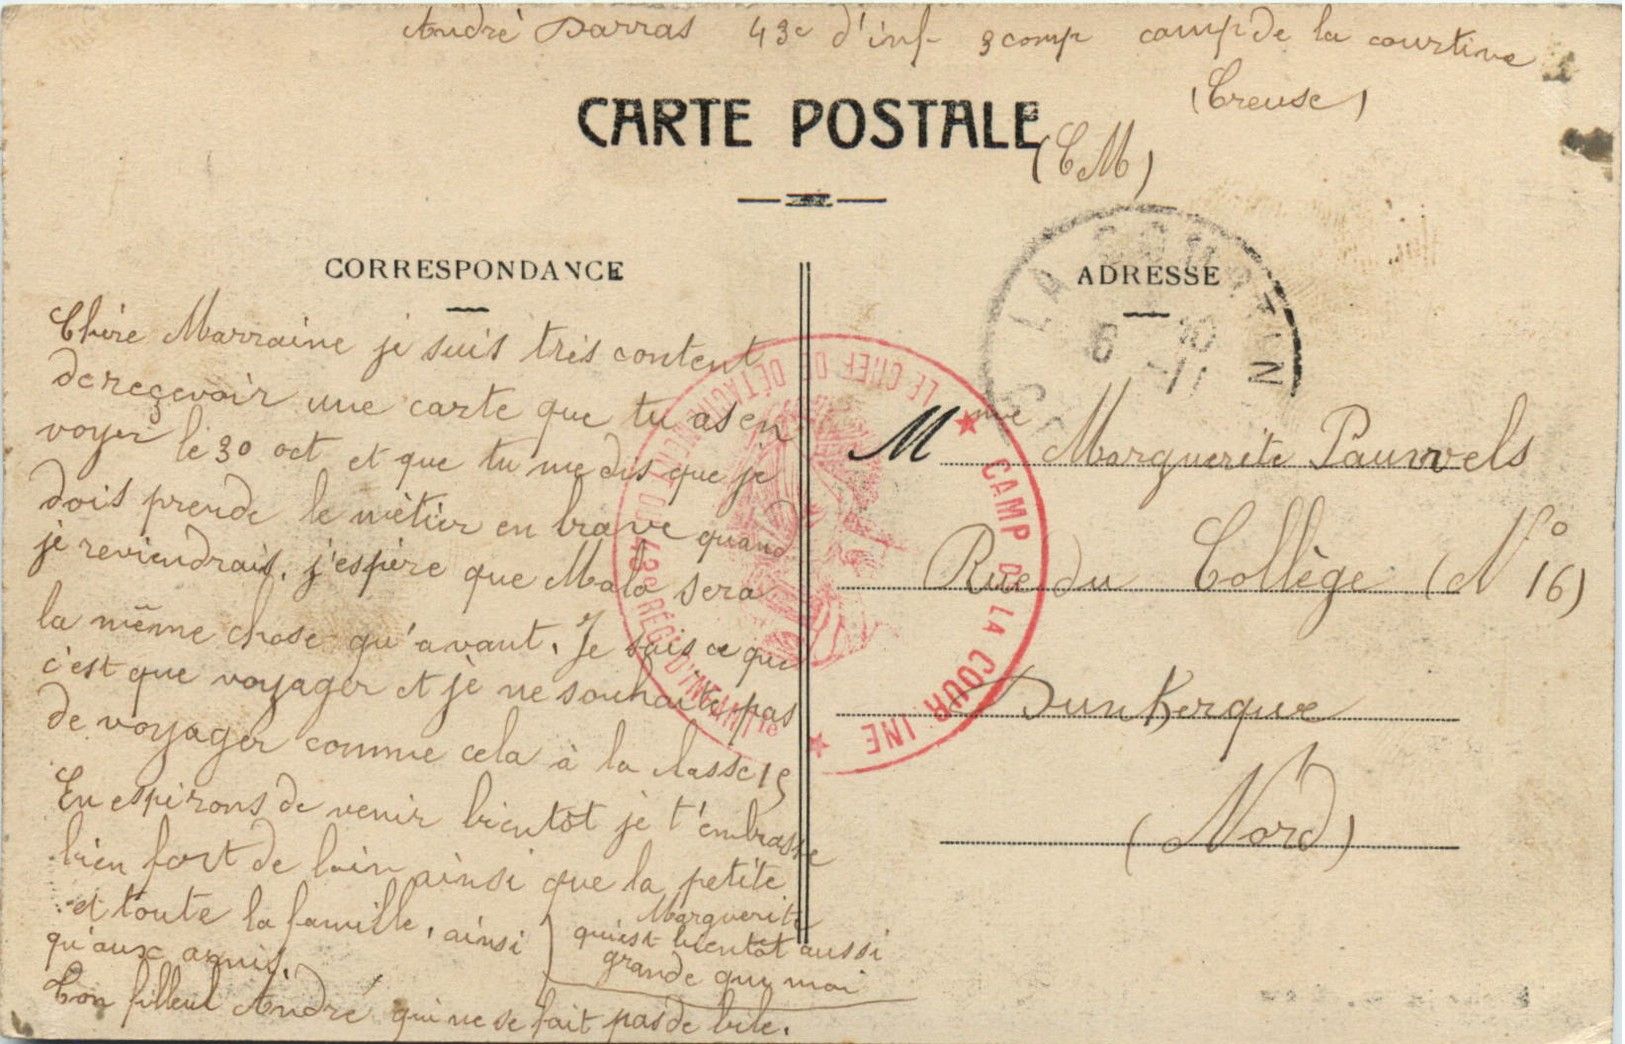 André Darras 43e d'inf- 9 comp camp de la courtine
(Creuse)
CARTE POSTALE
(C M)
CORRESPONDANCE
ADRESSE
Chère Marraine je suis très content
de reçevoir une carte que tu as en
voyer le 30 oct et que tu me dis que je
dois prende le mètier en brave quand
je reviendrais, j'espère que Malo sera
la même chose qu'avant. Je sais ce que
c'est que voyager et je ne souhaite pas
de voyager comme cela à la classe 15
En espérons de venir bientôt je t'embrasse
bien fort de loin ainsi que la petite
Marguerite
et toute la famille, ainsi
qu'est bientôt aussi
qu'aux amis.
grande que moi
Ton filleul André qui ne se fait pas de bile.
Mme Marguerite Pauwels
Rue du Collège (No 16)
Dunkerque
(Nord)
LA COURTINE
6 - 11
★ CAMP DE LA COURTINE ★
LE CHEF DE DÉTACHEMENT DU 43e RÉGt D'INFANTIE